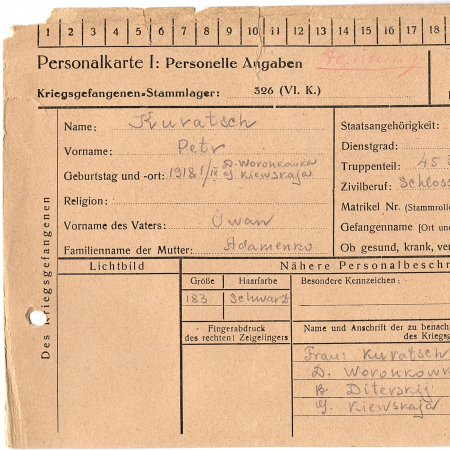 1 2 3 4 5 6 7 8 9 10 11 12 13 14 15 16 17 18
Personalkarte I: Personelle Angaben
Kriegsgefangenen-Stammlager: 326 (VI. K.)
Des Kriegsgefangenen
Name: Kuratsch
Vorname: Petr
Geburtstag und -ort: 1918 1/IX D. Woronkowka
G. Kiewskaja
Religion:
Vorname des Vaters: Iwan
Familienname der Mutter: Adamenko
Staatsangehörigkeit:
Dienstgrad:
Truppenteil: 45
Zivilberuf: Schloss
Matrikel Nr. (Stammrolle
Gefangenname [Ort und
Ob gesund, krank, ver
Lichtbild
Nähere Personalbeschr
Größe Haarfarbe
183 Schwarz
Besondere Kennzeichen:
Fingerabdruck
des rechten! Zeigefingers
Name und Anschrift der zu benach
des Kriegsg
Frau: Kuratsch
D. Woronkowk
B. Diterskij
G. Kiewskaja